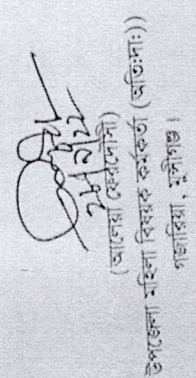 ২৮/২/২২
(আলেয়া ফেরদৌসী)
উপজেলা মহিলা বিষয়ক কর্মকর্তা (অতি:দা:))
গজারিয়া, মুন্সীগঞ্জ।